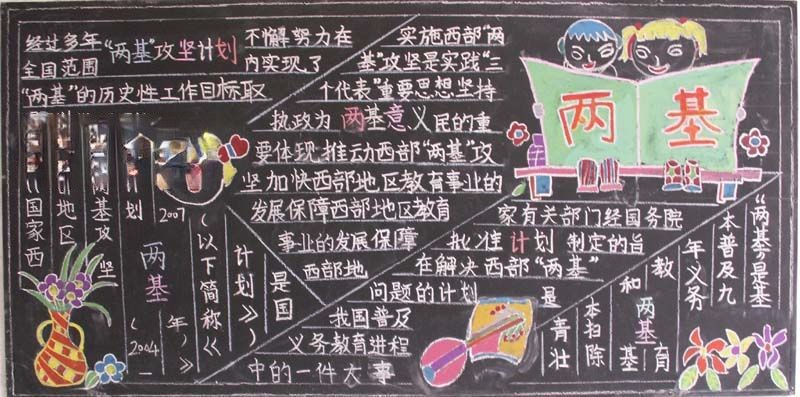 经过多年
全国范围
"两基"攻坚计划
不懈努力在
内实现了
"两基"的历史性工作目标取
《国家西
地区
两基攻坚
划
2007
两基
(2004—
年)》
(以下简称《
计划》)
是国
实施西部"两
基"攻坚是实践"三
个代表"重要思想坚持
执政为两基意义民的重
要体现推动西部"两基"攻
坚加快西部地区教育事业的
发展保障西部地区教育
事业的发展保障
西部地
家有关部门经国务院
批准计划制定的旨
在解决西部"两基"
问题的计划
我国普及
义务教育进程
中的一件大事
两基
"两基"是基
本普及九
年义务
教育
两基
和基
本扫除
是青壮